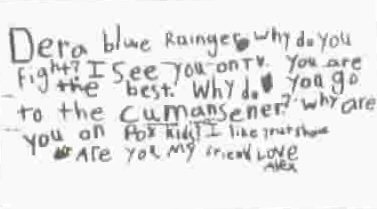 Dera blue Rainger why do you
fight? I See you on TV. You are
the best. Why do you go
to the cumansener? why are
you on Fox kids? I like your show
Are you my friend LOVE
Alex